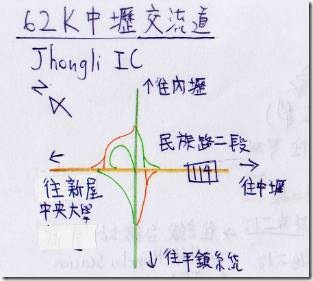 62K中壢交流道
Jhongli IC
N
↑往內壢
民族路二段
114
←
往新屋
中央大學
→
往中壢
↓往平鎮系統